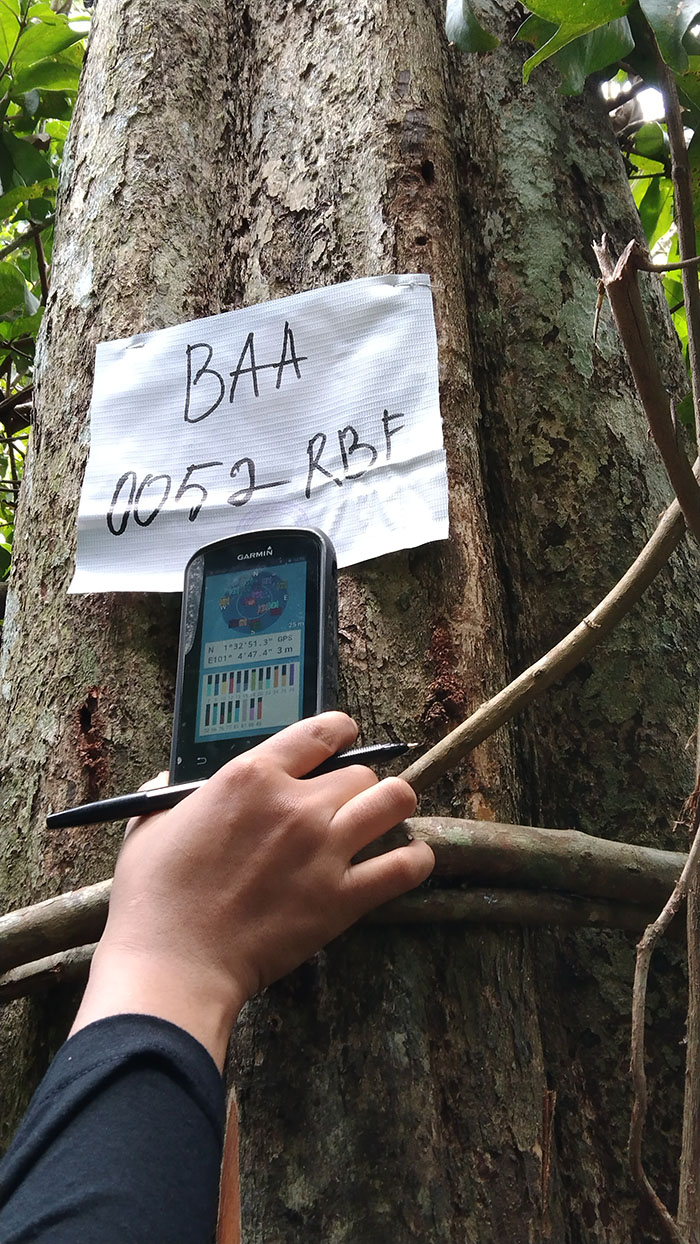 BAA
0052 RBF
GARMIN
N
E
25 m
N 1°32'51.3" GPS
E101° 4'47.4" 3 m